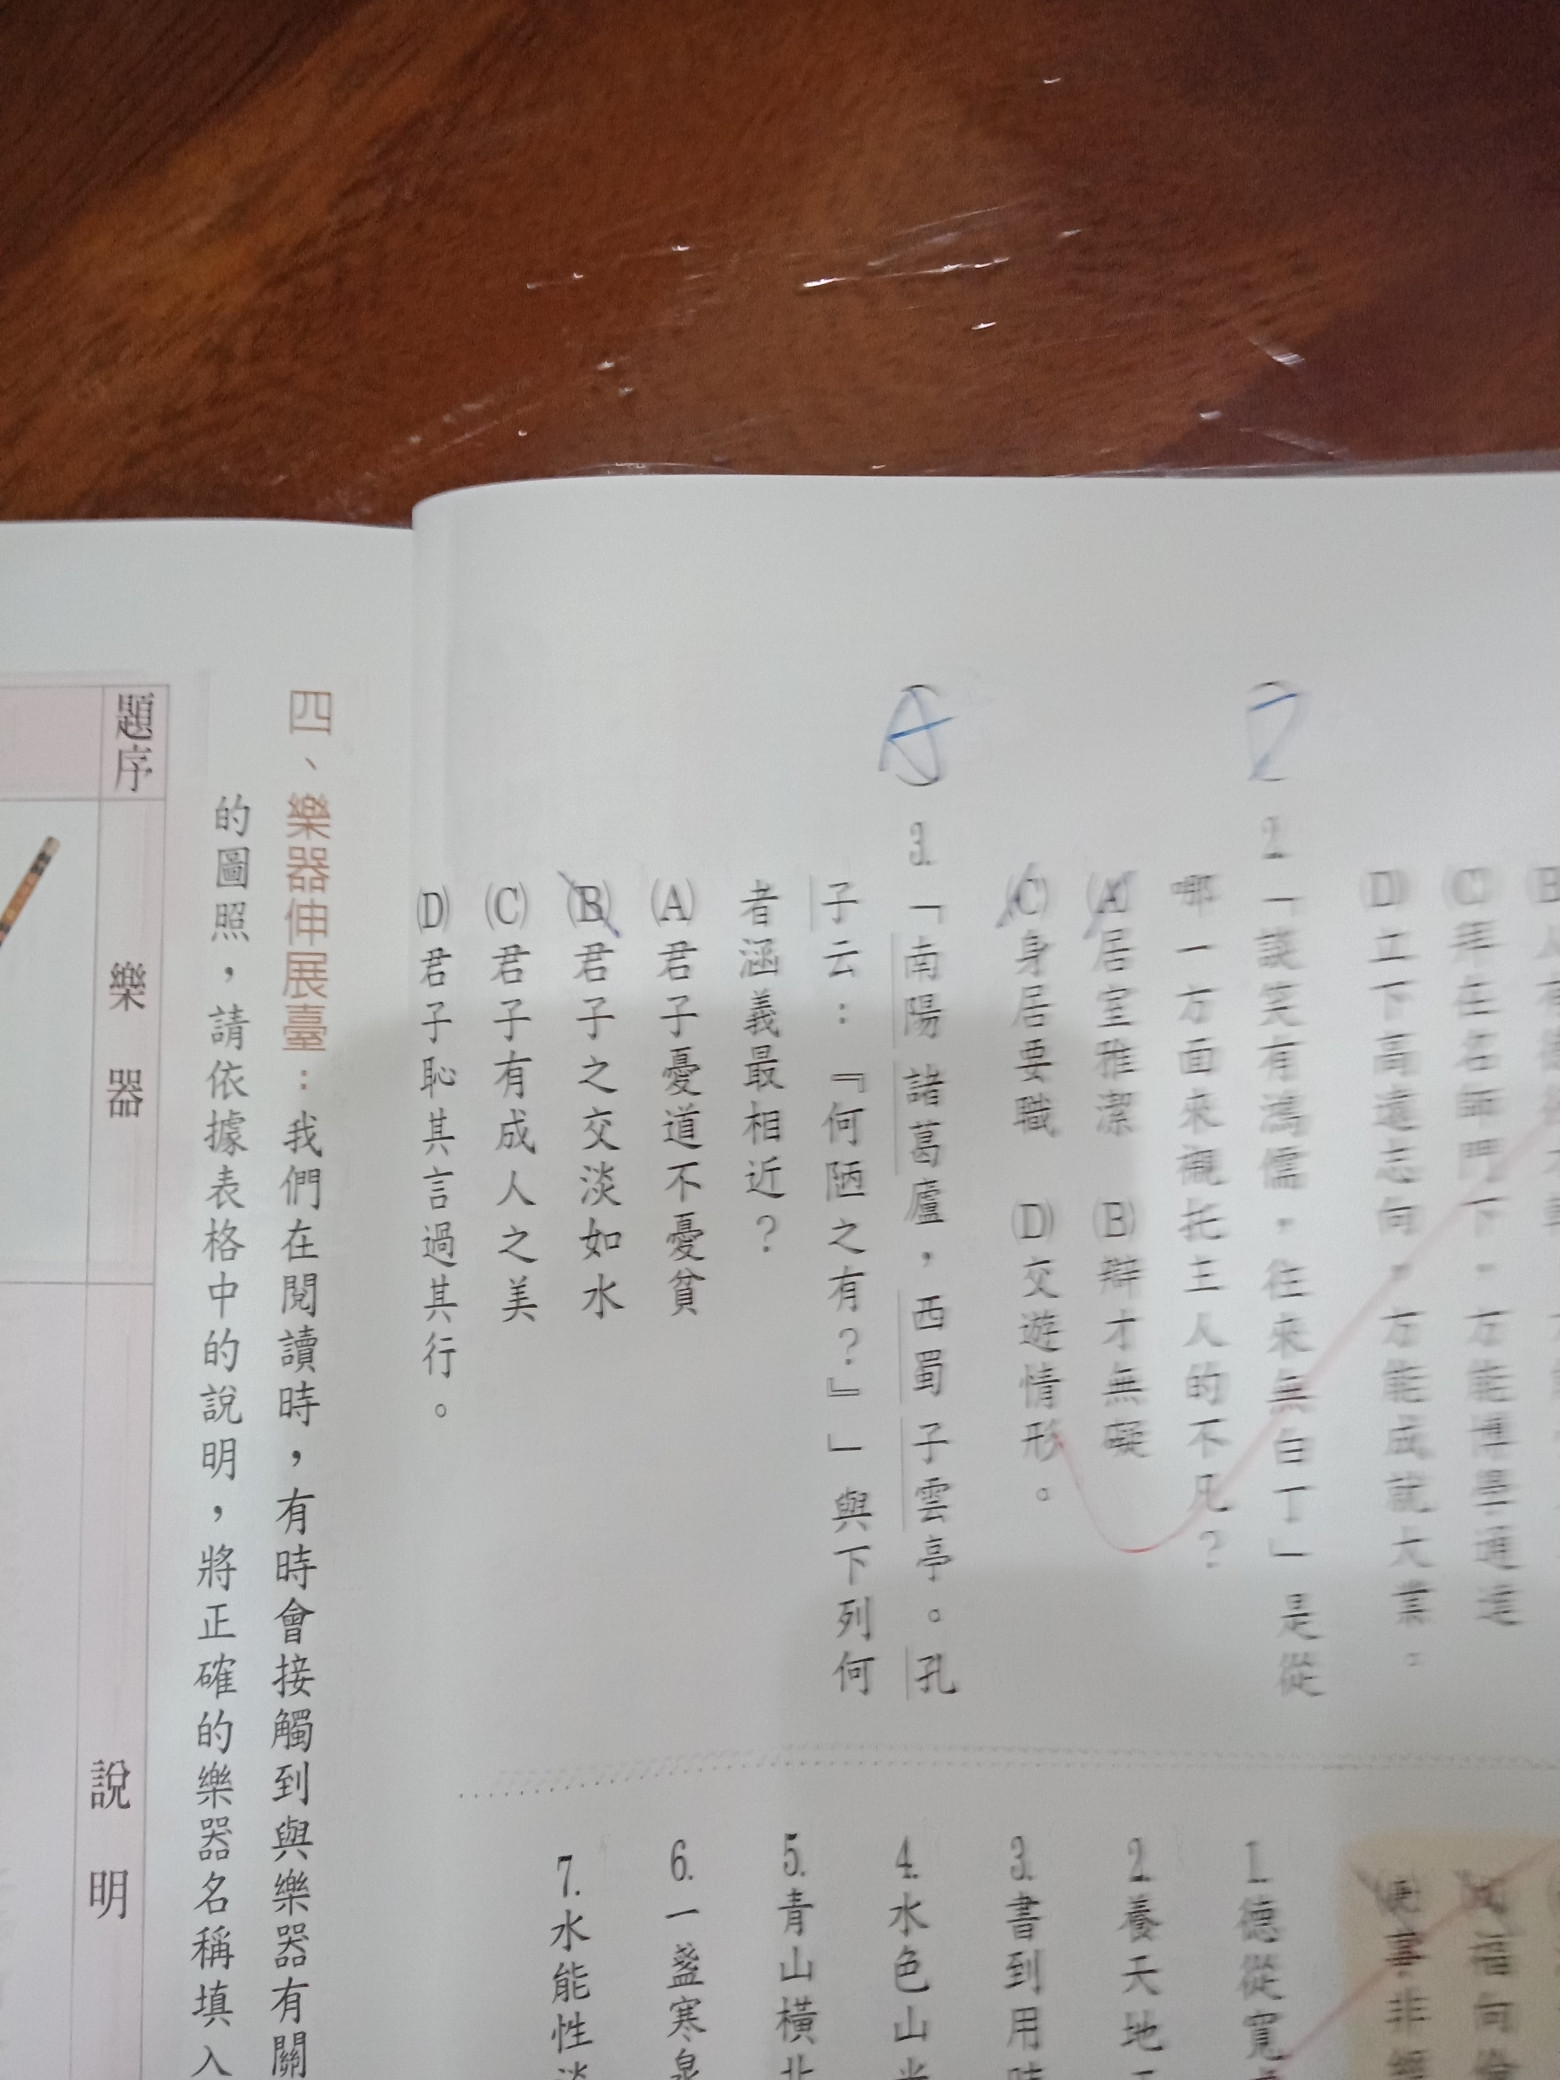 D
2.「談笑有鴻儒，往來無白丁」是從
哪一方面來襯托主人的不凡？
(A)居室雅潔 (B)辯才無礙
(C)身居要職 (D)交遊情形。
3.「南陽諸葛廬，西蜀子雲亭。孔
子云：『何陋之有？』」與下列何
者涵義最相近？
(A)君子憂道不憂貧
(B)君子之交淡如水
(C)君子有成人之美
(D)君子恥其言過其行。
(C)拜在名師門下，方能博學通達
(D)立下高遠志向，方能成就大業。
福
1.德從寬
2.養天地
3.書到用時
4.水色山光
5.青山橫北
6.一盞寒泉
7.水能性淡
四、樂器伸展臺：我們在閱讀時，有時會接觸到與樂器有關
的圖照，請依據表格中的說明，將正確的樂器名稱填入
題序
樂器
說明